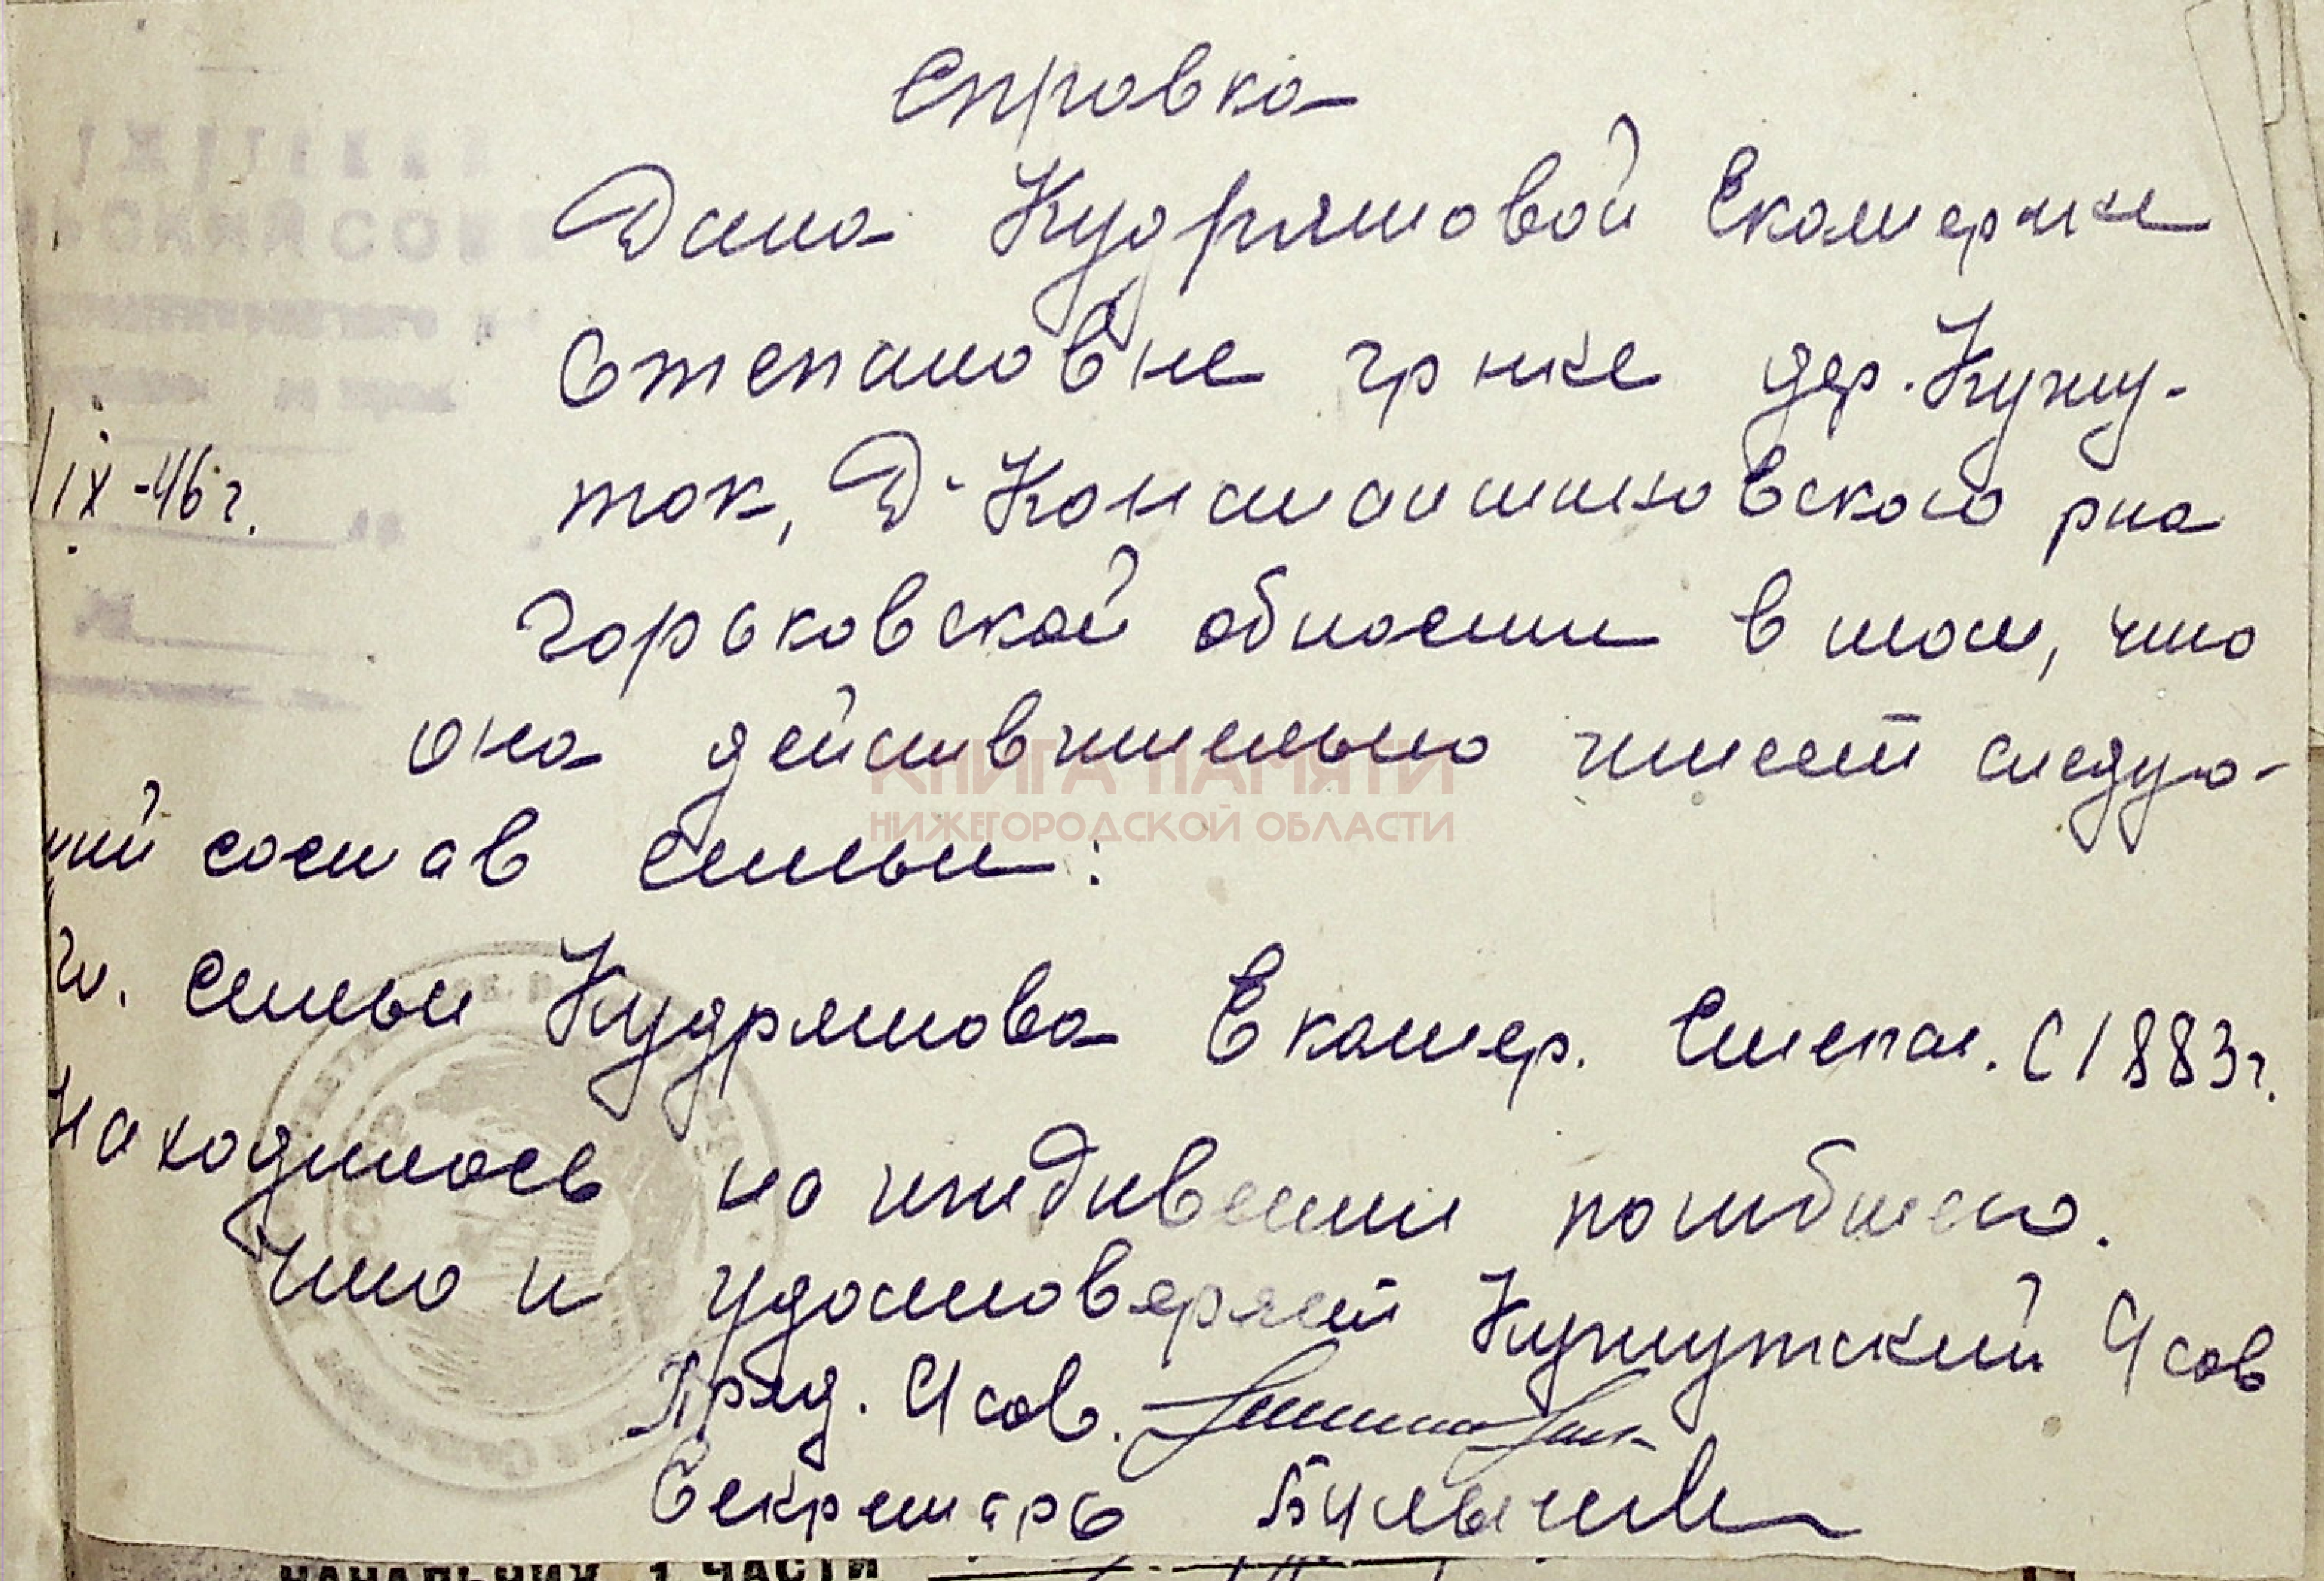 Справка
Дана Кудряшовой Екатерине
Степановне гр нке дер. Кужу-
ток, Д-Константиновского рна
Горьковской области в том, что
она действительно имеет следую-
щий состав семьи:
Гл. семьи Кудряшова Екатер. Степан. С 1883 г.
Находилась на иждивении погибшего.
Что и удостоверяет Кужутский С/сов
Пред. С/сов.
Секретарь
ЬСКИЙ СОВ
IX-46 г.
КНИГА ПАМЯТИ
НИЖЕГОРОДСКОЙ ОБЛАСТИ
НАЧАЛЬНИК 1 ЧАСТИ